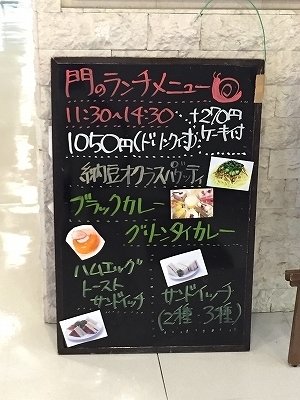 門のランチメニュー
11:30~14:30
+270円
ケーキ付
1050円(ドリンク付)
納豆オクラスパゲッティ
ブラックカレー
グリーンタイカレー
ハムエッグ
トースト
サンドイッチ
サンドイッチ
(2種・3種)